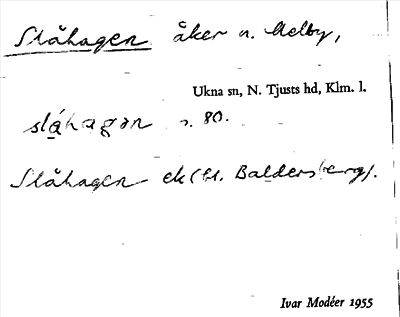 Slåhagen åker n. Melby,
Ukna sn, N. Tjusts hd, Klm. l.
slåhagen s. 80.
Slåhagen ek (st. Baldersberg).
Ivar Modéer 1955